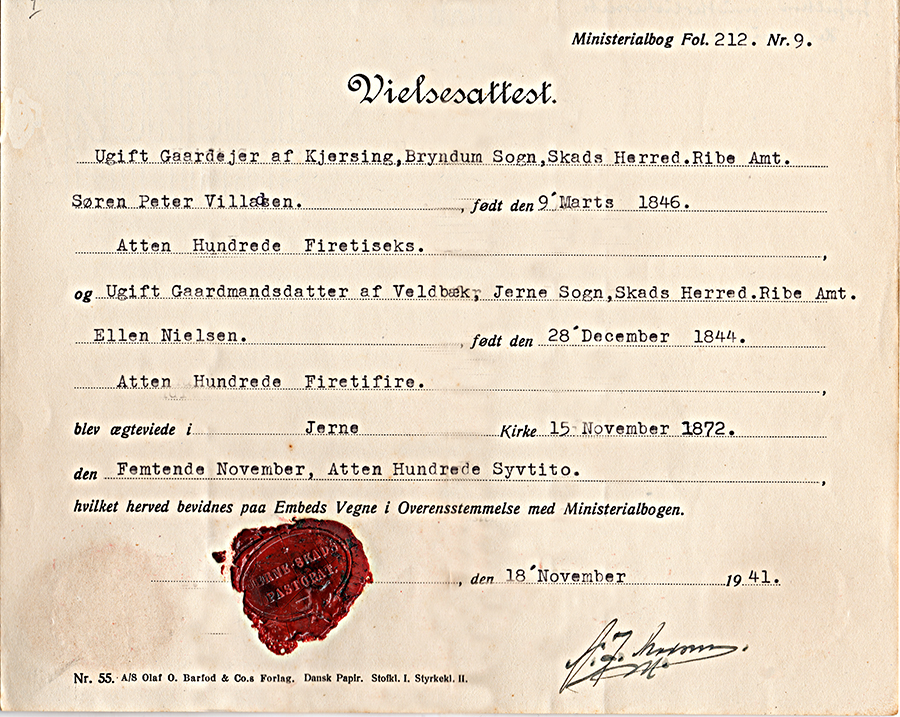 Ministerialbog Fol. 212. Nr. 9.
Vielsesattest.
Ugift Gaardejer af Kjersing,Bryndum Sogn,Skads Herred.Ribe Amt.
Søren Peter Villadsen. , født den 9' Marts 1846.
Atten Hundrede Firetiseks. ,
og Ugift Gaardmandsdatter af Veldbæk, Jerne Sogn,Skads Herred.Ribe Amt.
Ellen Nielsen. , født den 28' December 1844.
Atten Hundrede Firetifire. ,
blev ægteviede i Jerne Kirke 15 November 1872.
den Femtende November, Atten Hundrede Syvtito. ,
hvilket herved bevidnes paa Embeds Vegne i Overensstemmelse med Ministerialbogen.
SKADS
PASTORAT.
, den 18' November 1941.
Nr. 55. A/S Olaf O. Barfod & Co.s Forlag. Dansk Papir. Stofkl. I. Styrkekl. II.